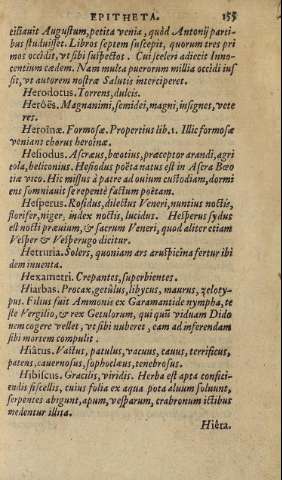 EPITHETA. 155
citiauit Augustum, petita venia, quòd Antonij parti-
bus studuisset. Libros septem suscepit, quorum tres pri
mos occidit, vt sibi suspectos. Cui sceleri adiecit Inno-
centium cædem. Nam multa puerorum millia occidi ius
sit, vt autorem nostræ Salutis interciperet.
Herodotus. Torrens, dulcis.
Heröës. Magnanimi, semidei, magni, insignes, vete
res.
Heroinæ. Formosæ. Propertius lib. 1. Illic formosæ
veniant chorus heroinæ.
Hesiodus. Ascræus, bœotius, præceptor arandi, agri
cola, heliconius. Hesiodus poëta natus est in Ascra Bœo
tiæ vico. Hic missus à patre ad ouium custodiam, dormi
ens somniauit se repentè factum poëtam.
Hesperus. Rosidus, dilectus Veneri, nuntius noctis,
florifer, niger, index noctis, lucidus. Hesperus sydus
est nocti præuium, & sacrum Veneri, quod aliter etiam
Vesper & Vesperugo dicitur.
Hetruria. Solers, quoniam ars aruspicina fertur ibi
dem inuenta.
Hexametri. Crepantes, superbientes.
Hiarbas. Procax, getulus, libycus, maurus, zeloty-
pus. Filius fuit Ammonis ex Garamantide nympha, te
ste Vergilio, & rex Getulorum, qui quũ viduam Dido
nem cogere vellet, vt sibi nuberet, eam ad inferendam
sibi mortem compulit.
Hiâtus. Vastus, patulus, vacuus, cauus, terrificus,
patens, cauernosus, sophoclæus, tenebrosus.
Hibiscus. Gracilis, viridis. Herba est apta confici-
endis fiscellis, cuius folia ex aqua pota aluum soluunt,
serpentes abigunt, apum, vesparum, crabronum ictibus
medentur illita.
Hiêra.